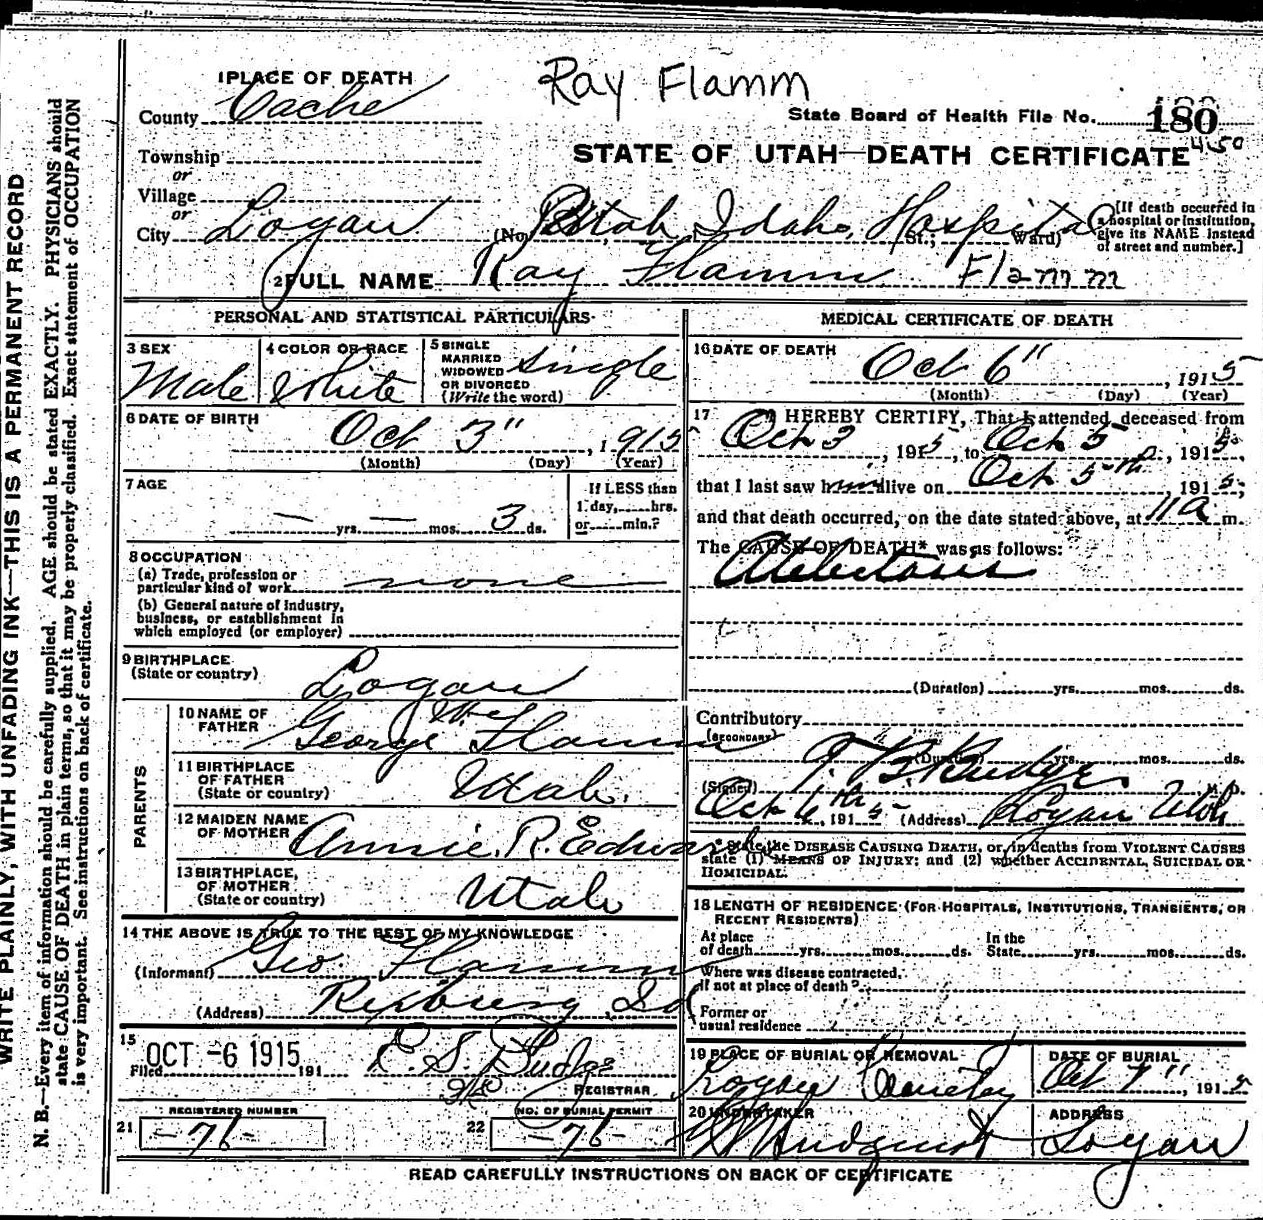 Ray Flamm
1 PLACE OF DEATH
County Cache
State Board of Health File No. 180
4150
Township
or
STATE OF UTAH—DEATH CERTIFICATE
Village
or
City Logan (No. Utah Idaho Hospital St.; Ward)
[If death occurred in
a hospital or institution,
give its NAME instead
of street and number.]
2 FULL NAME Ray Flamm Flamm
PERSONAL AND STATISTICAL PARTICULARS
3 SEX
Male
4 COLOR OR RACE
White
5 SINGLE
MARRIED
WIDOWED
OR DIVORCED
(Write the word)
Single
6 DATE OF BIRTH
Oct 3", 1915
(Month) (Day) (Year)
7 AGE
— yrs. — mos. 3 ds.
If LESS than
1 day, hrs.
or min.?
8 OCCUPATION
(a) Trade, profession or
particular kind of work none
(b) General nature of industry,
business, or establishment in
which employed (or employer)
9 BIRTHPLACE
(State or country) Logan
PARENTS
10 NAME OF
FATHER George Flamm
11 BIRTHPLACE
OF FATHER
(State or country) Utah.
12 MAIDEN NAME
OF MOTHER Annie R. Edwards
13 BIRTHPLACE,
OF MOTHER
(State or country) Utah
14 THE ABOVE IS TRUE TO THE BEST OF MY KNOWLEDGE
(Informant) Geo Flamm
(Address) Rexburg Id
15
Filed OCT -6 1915 191
REGISTRAR
REGISTERED NUMBER
21 -76-
NO. OF BURIAL PERMIT
22 -76-
MEDICAL CERTIFICATE OF DEATH
16 DATE OF DEATH
Oct 6", 1915
(Month) (Day) (Year)
17 I HEREBY CERTIFY, That I attended deceased from
Oct 3, 1915, to Oct 5, 1915,
that I last saw him alive on Oct 5th, 1915;
and that death occurred, on the date stated above, at 11 a m.
The CAUSE OF DEATH* was as follows:
(Duration) yrs. mos. ds.
Contributory
(SECONDARY)
(Duration) yrs. mos. ds.
(Signed) T. B. Budge M. D.
Oct 6th, 1915 (Address) Logan Utah
* State the DISEASE CAUSING DEATH, or, in deaths from VIOLENT CAUSES
state (1) MEANS OF INJURY; and (2) whether ACCIDENTAL, SUICIDAL OR
HOMICIDAL.
18 LENGTH OF RESIDENCE (FOR HOSPITALS, INSTITUTIONS, TRANSIENTS, OR
RECENT RESIDENTS)
At place
of death yrs. mos. ds.
In the
State yrs. mos. ds.
Where was disease contracted,
if not at place of death?
Former or
usual residence
19 PLACE OF BURIAL OR REMOVAL
Logan Cemetery
DATE OF BURIAL
Oct 7", 1915
20 UNDERTAKER
ADDRESS
Logan
READ CAREFULLY INSTRUCTIONS ON BACK OF CERTIFICATE
WRITE PLAINLY, WITH UNFADING INK—THIS IS A PERMANENT RECORD
N. B.—Every item of information should be carefully supplied. AGE should be stated EXACTLY. PHYSICIANS should
state CAUSE OF DEATH in plain terms, so that it may be properly classified. Exact statement of OCCUPATION
is very important. See instructions on back of certificate.